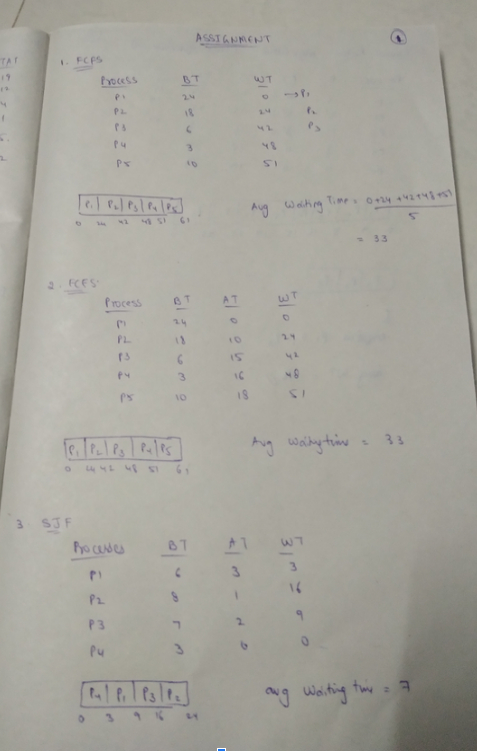 TAT
19
ASSIGNMENT
1
1. FCFS
Process BT WT
P1 24 0 → P1
P2 18 24 P2
P3 6 42 P3
P4 3 48
P5 10 51
P1 P2 P3 P4 P5
0 24 42 48 51 61
Avg Waiting Time = 0+24+42+48+51
5
= 33
2. FCFS
Process BT AT WT
P1 24 0 0
P2 18 10 24
P3 6 15 42
P4 3 16 48
P5 10 18 51
P1 P2 P3 P4 P5
0 24 42 48 51 61
Avg Waiting time = 33
3. SJF
Processes BT AT WT
P1 6 3 3
P2 8 1 16
P3 7 2 9
P4 3 0 0
P4 P1 P3 P2
0 3 9 16 24
avg waiting time = 7